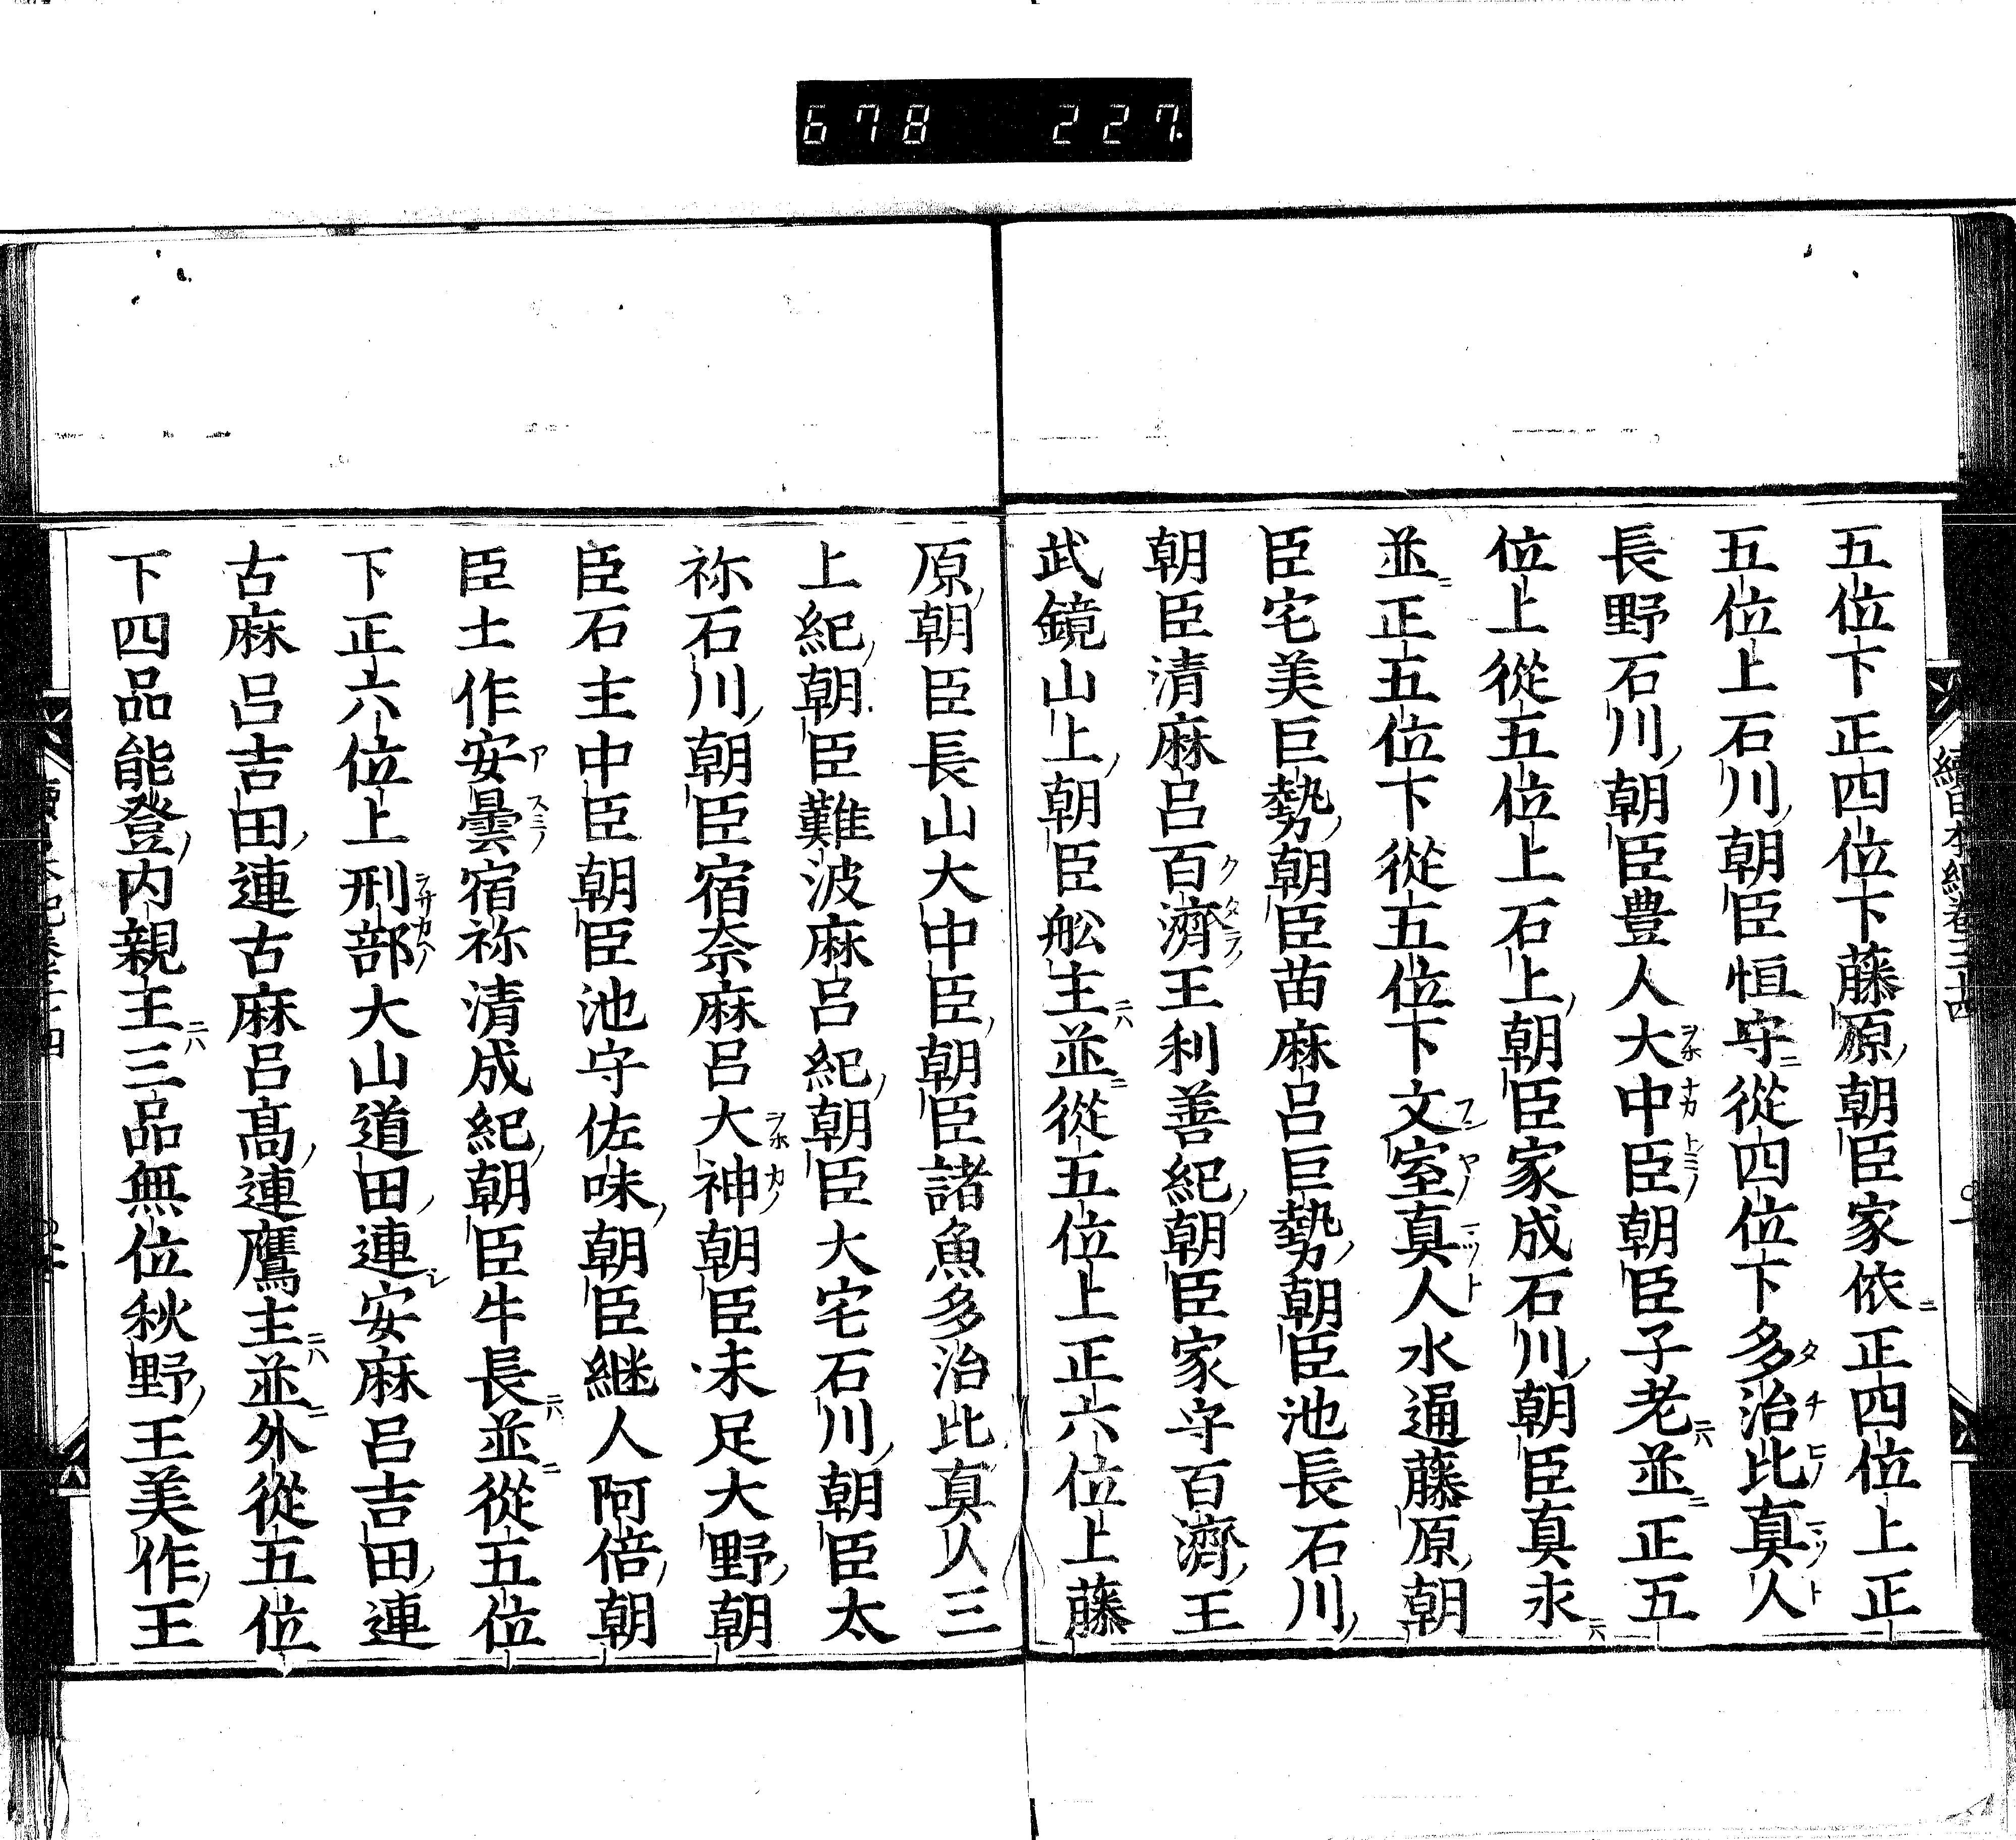 678 227
五位下正四位下藤原朝臣家依正四位上正
五位上石川朝臣恒守從四位下多治比真人
長野石川朝臣豊人大中臣朝臣子老並正五
位上從五位上石上朝臣家成石川朝臣真永
並正五位下從五位下文室真人水通藤原朝
臣宅美巨勢朝臣苗麻呂巨勢朝臣池長石川
朝臣清麻呂百濟王利善紀朝臣家守百濟王
武鏡山上朝臣舩主並從五位上正六位上藤
原朝臣長山大中臣朝臣諸魚多治比真人三
上紀朝臣難波麻呂紀朝臣大宅石川朝臣太
祢石川朝臣宿奈麻呂大神朝臣末足大野朝
臣石主中臣朝臣池守佐味朝臣継人阿倍朝
臣土作安曇宿祢清成紀朝臣牛長並從五位
下正六位上刑部大山道田連安麻呂吉田連
古麻呂吉田連古麻呂髙連鷹主並外從五位
下四品能登内親王三品無位秋野王美作王